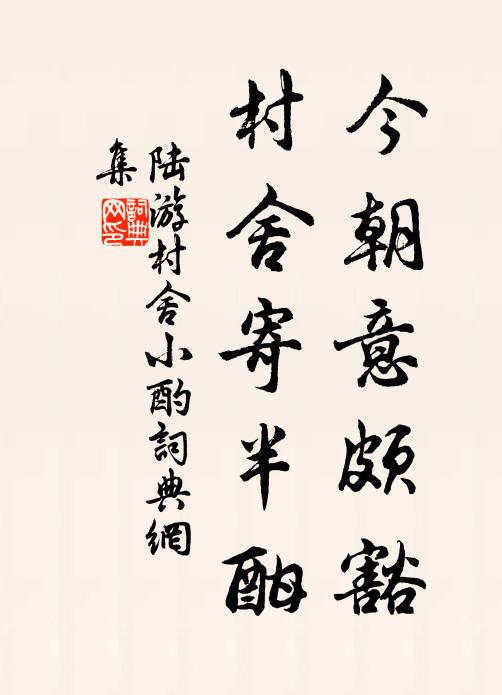 今朝意頗豁
村舍寄半酣
陆游村舍小酌詞典網
集
詞典网印